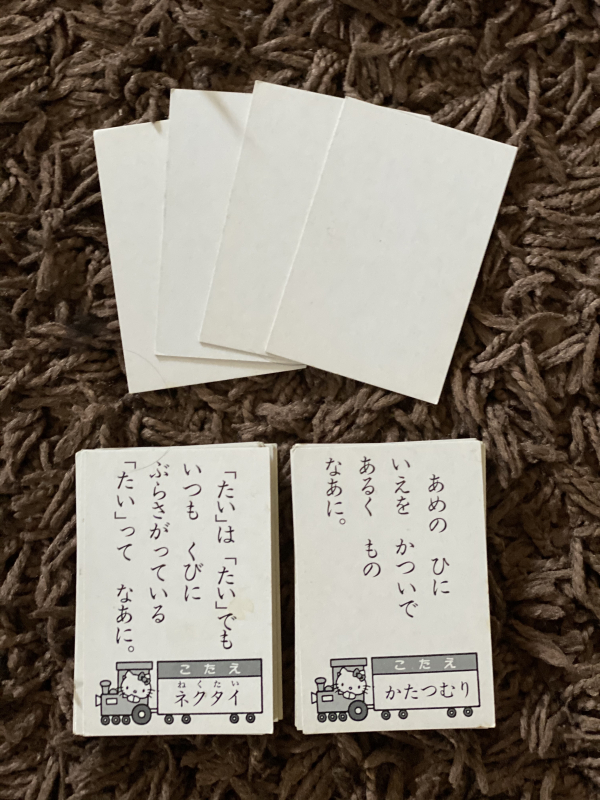 「たい」は 「たい」でも
いつも くびに
ぶらさがっている
「たい」って なあに。
こたえ
ねくたい
ネクタイ
あめの ひに
いえを かついで
あるく もの
なあに。
こたえ
かたつむり